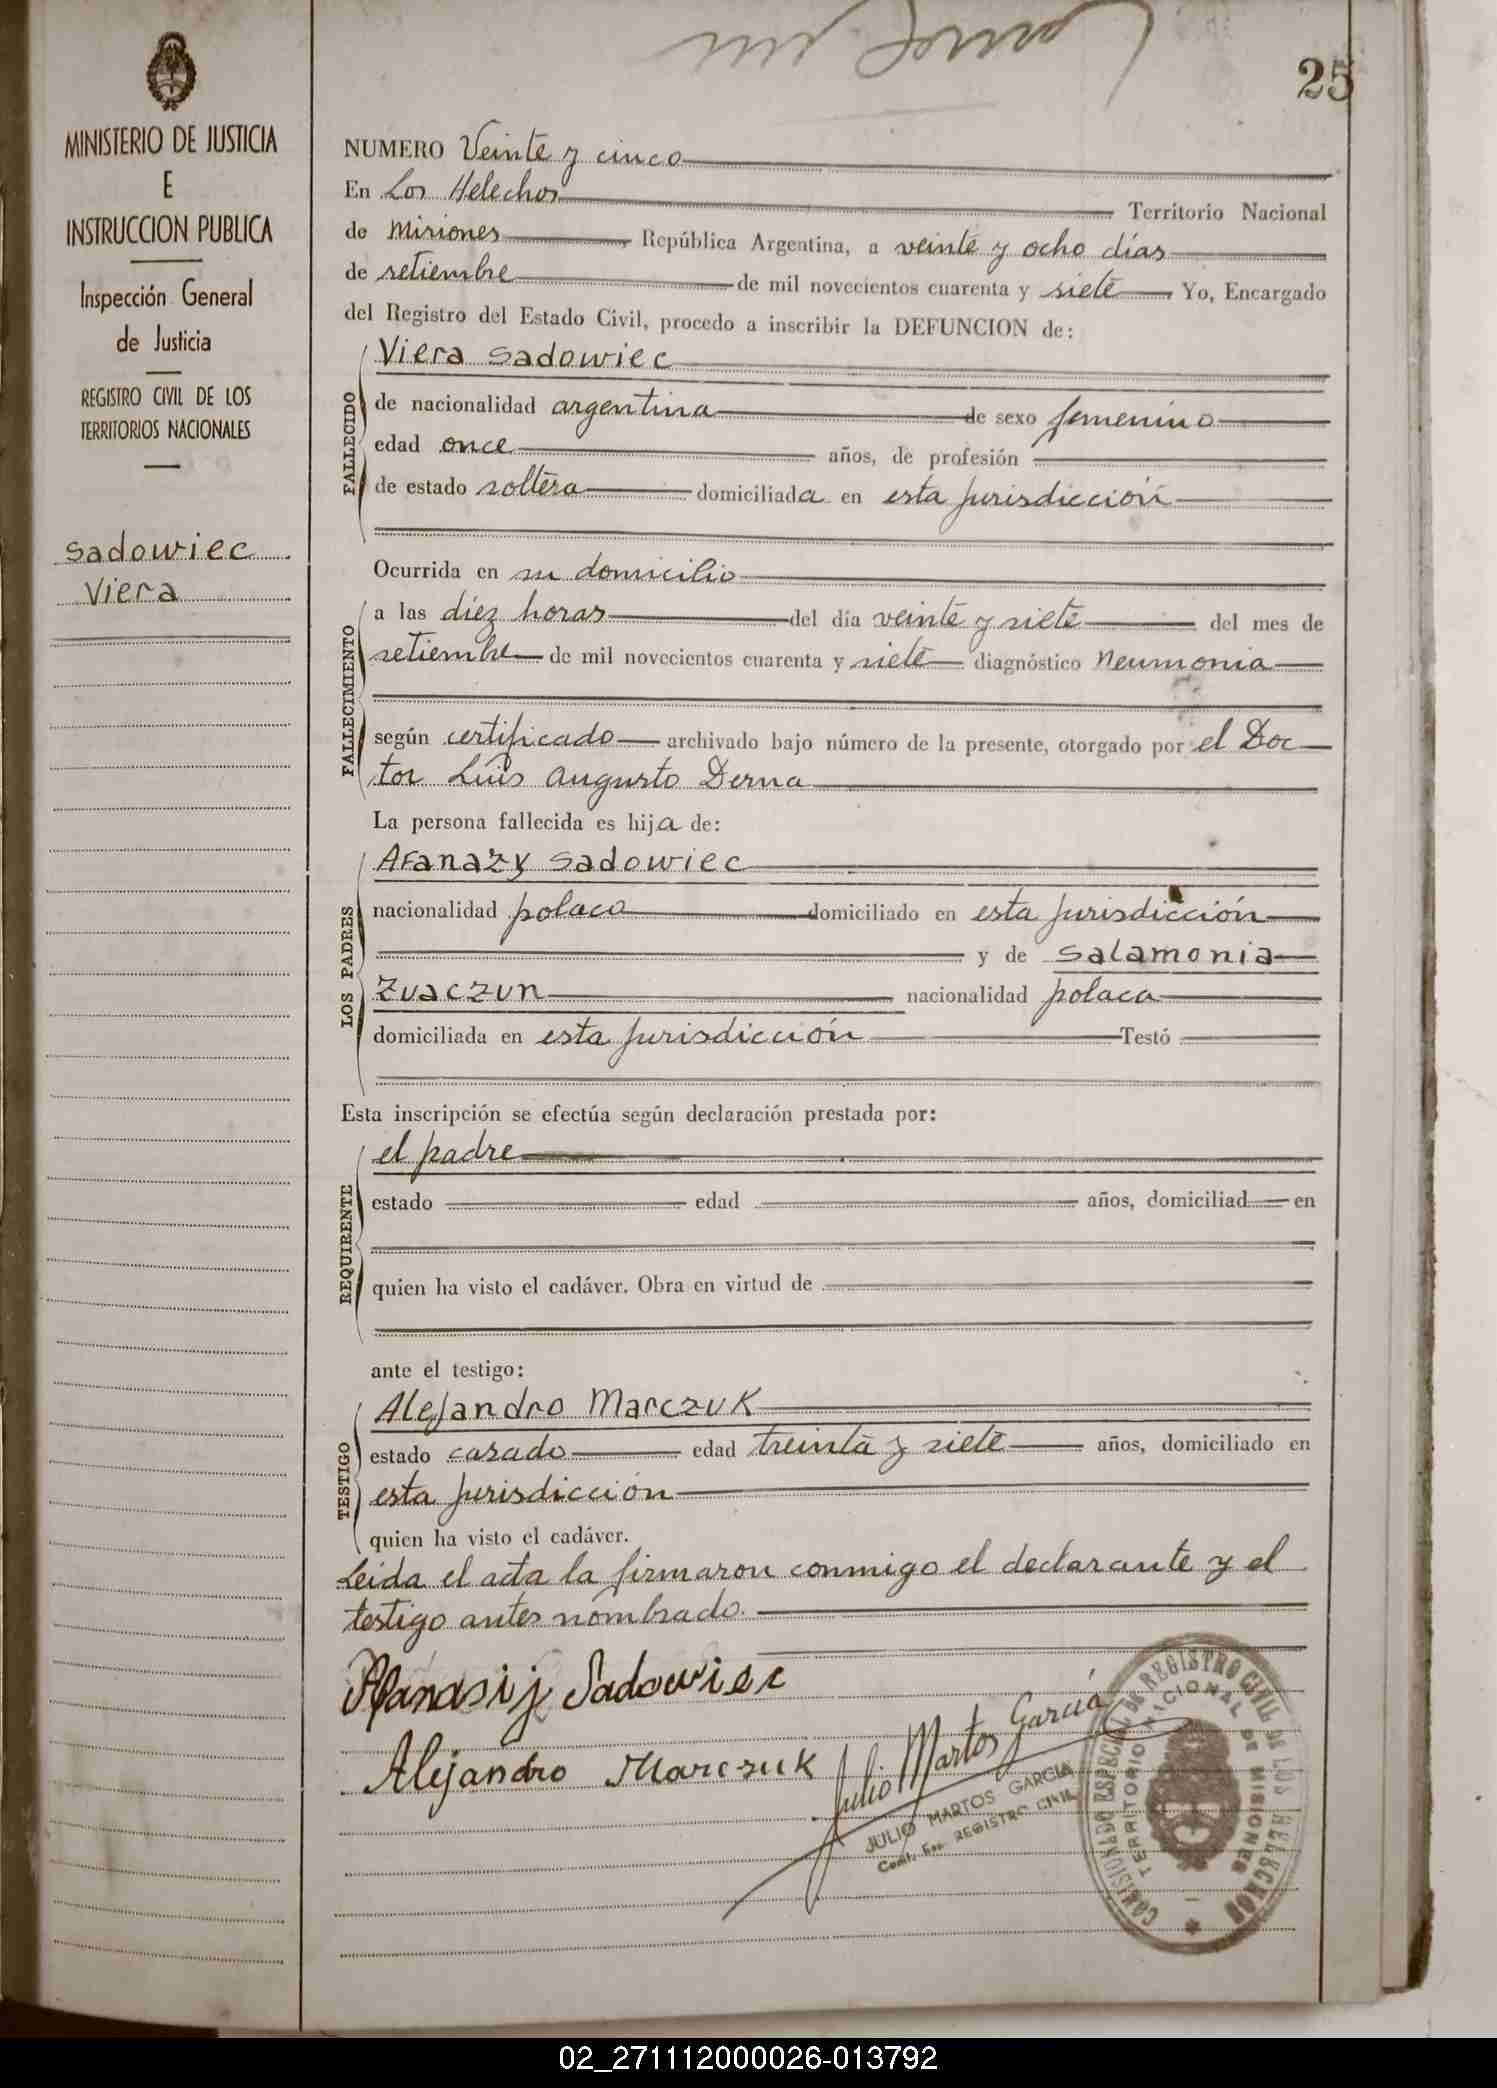 25
MINISTERIO DE JUSTICIA
E
INSTRUCCION PUBLICA
Inspección General
de Justicia
REGISTRO CIVIL DE LOS
TERRITORIOS NACIONALES
Sadowiec
Viera
NUMERO Veinte y cinco
En Los Helechos Territorio Nacional
de Misiones República Argentina, a veinte y ocho días
de setiembre de mil novecientos cuarenta y siete Yo, Encargado
del Registro del Estado Civil, procedo a inscribir la DEFUNCION de:
FALLECIDO
Viera Sadowiec
de nacionalidad argentina de sexo femenino
edad once años, de profesión
de estado soltera domiciliada en esta jurisdicción
FALLECIMIENTO
Ocurrida en su domicilio
a las diez horas del día veinte y siete del mes de
setiembre de mil novecientos cuarenta y siete diagnóstico Neumonia
según certificado archivado bajo número de la presente, otorgado por el Doc
tor Luis Augusto Derna
La persona fallecida es hija de:
LOS PADRES
Afanazy Sadowiec
nacionalidad polaca domiciliado en esta jurisdicción
y de Salamonia
Zuaczun nacionalidad polaca
domiciliada en esta jurisdicción Testó
Esta inscripción se efectúa según declaración prestada por:
REQUIRENTE
el padre
estado edad años, domiciliad en
quien ha visto el cadáver. Obra en virtud de
ante el testigo:
TESTIGO
Alejandro Marczuk
estado casado edad treinta y siete años, domiciliado en
esta jurisdicción
quien ha visto el cadáver.
Leída el acta la firmaron conmigo el declarante y el
testigo antes nombrado.
Afanasij Sadowiec
Alejandro Marczuk
Julio Martos García
JULIO MARTOS GARCIA
REGISTRO CIVIL
COMISION DE ESPECIAL DE REGISTRO CIVIL DE LOS HELECHOS
TERRITORIO NACIONAL DE MISIONES
02_271112000026-013792